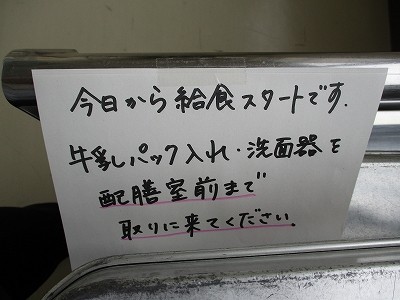 今日から給食スタートです.
牛乳パック入れ・洗面器を
配膳室前まで
取りに来てください.